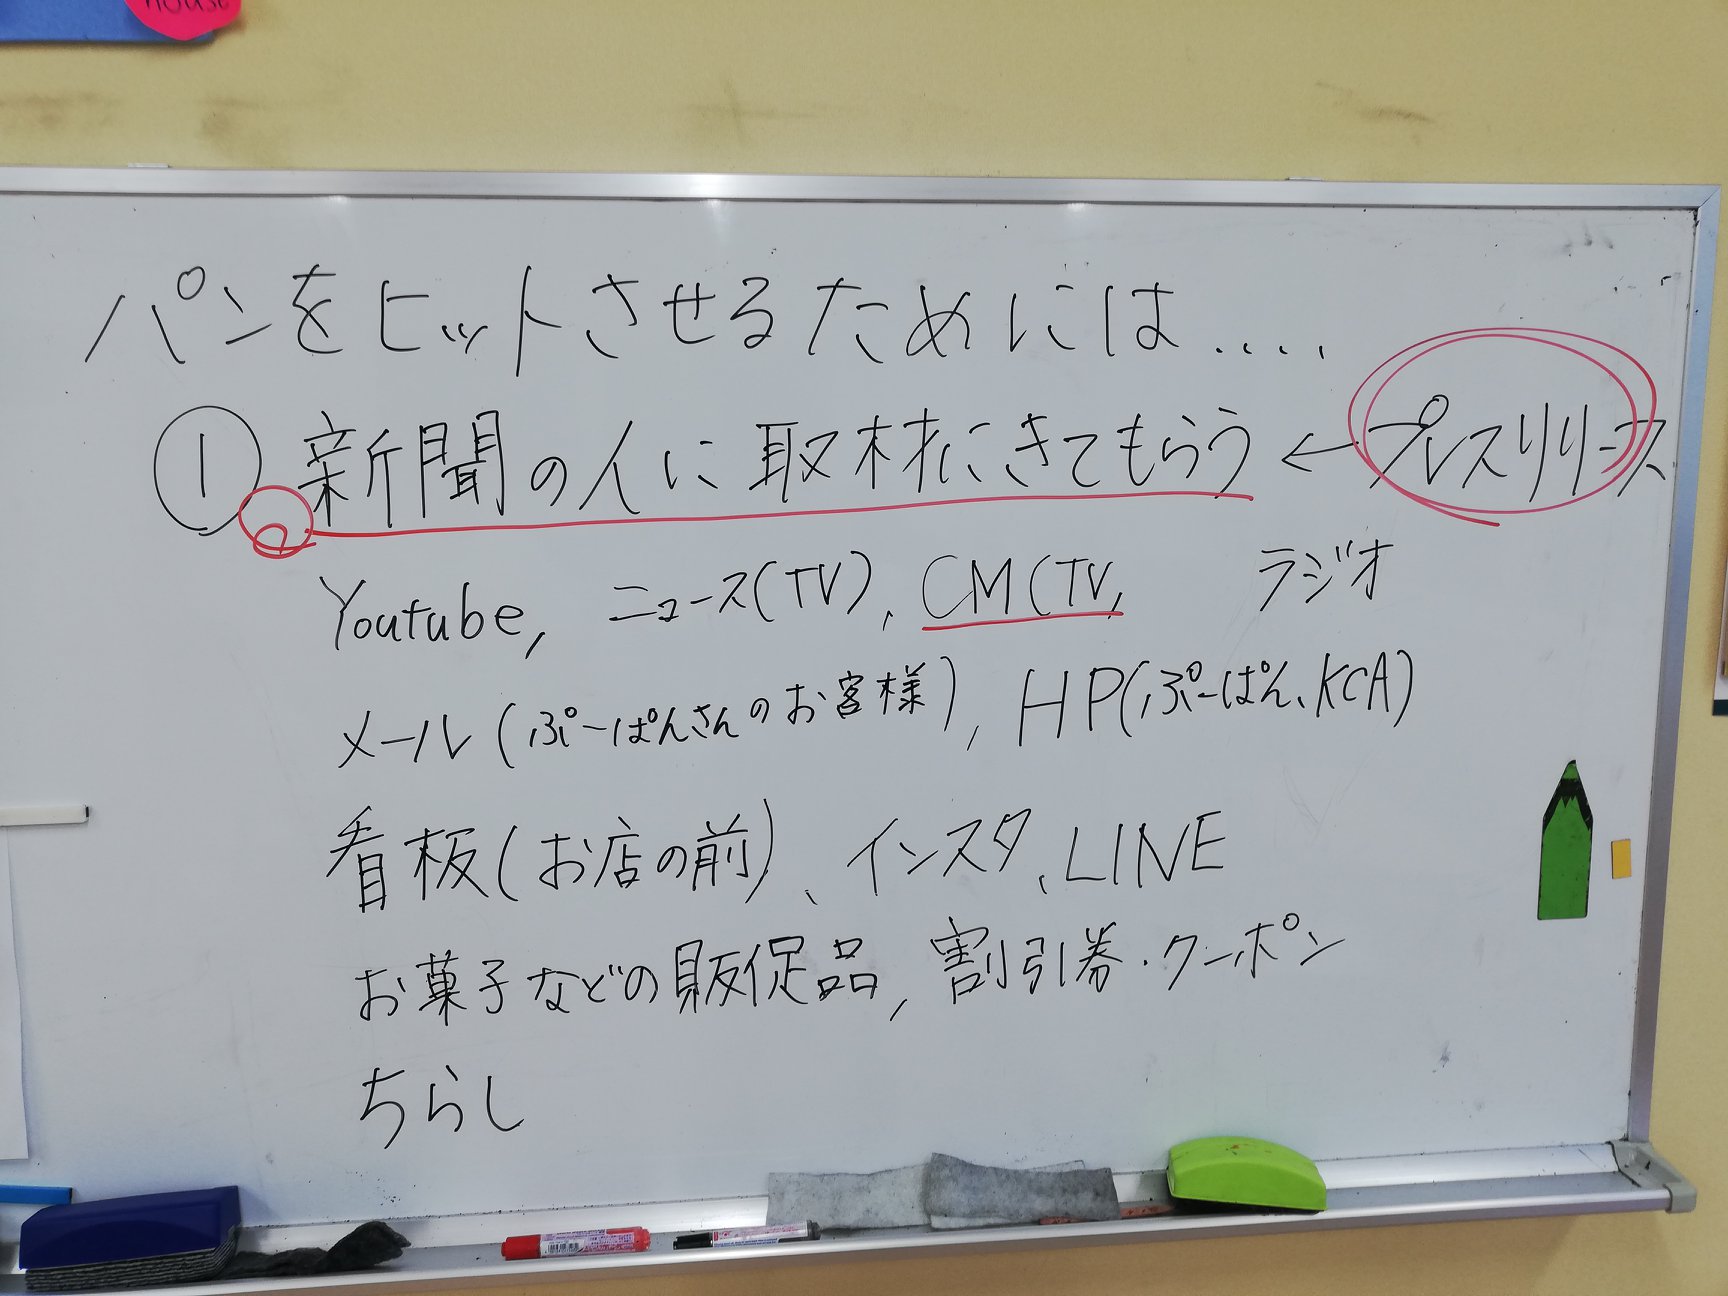 house
パンをヒットさせるためには....
① 新聞の人に取材にきてもらう ← プレスリリース
Youtube, ニュース(TV), CM(TV, ラジオ
メール(ぷーぱんさんのお客様), HP(ぷーぱん、KCA)
看板(お店の前)、インスタ、LINE
お菓子などの販促品, 割引券・クーポン
ちらし